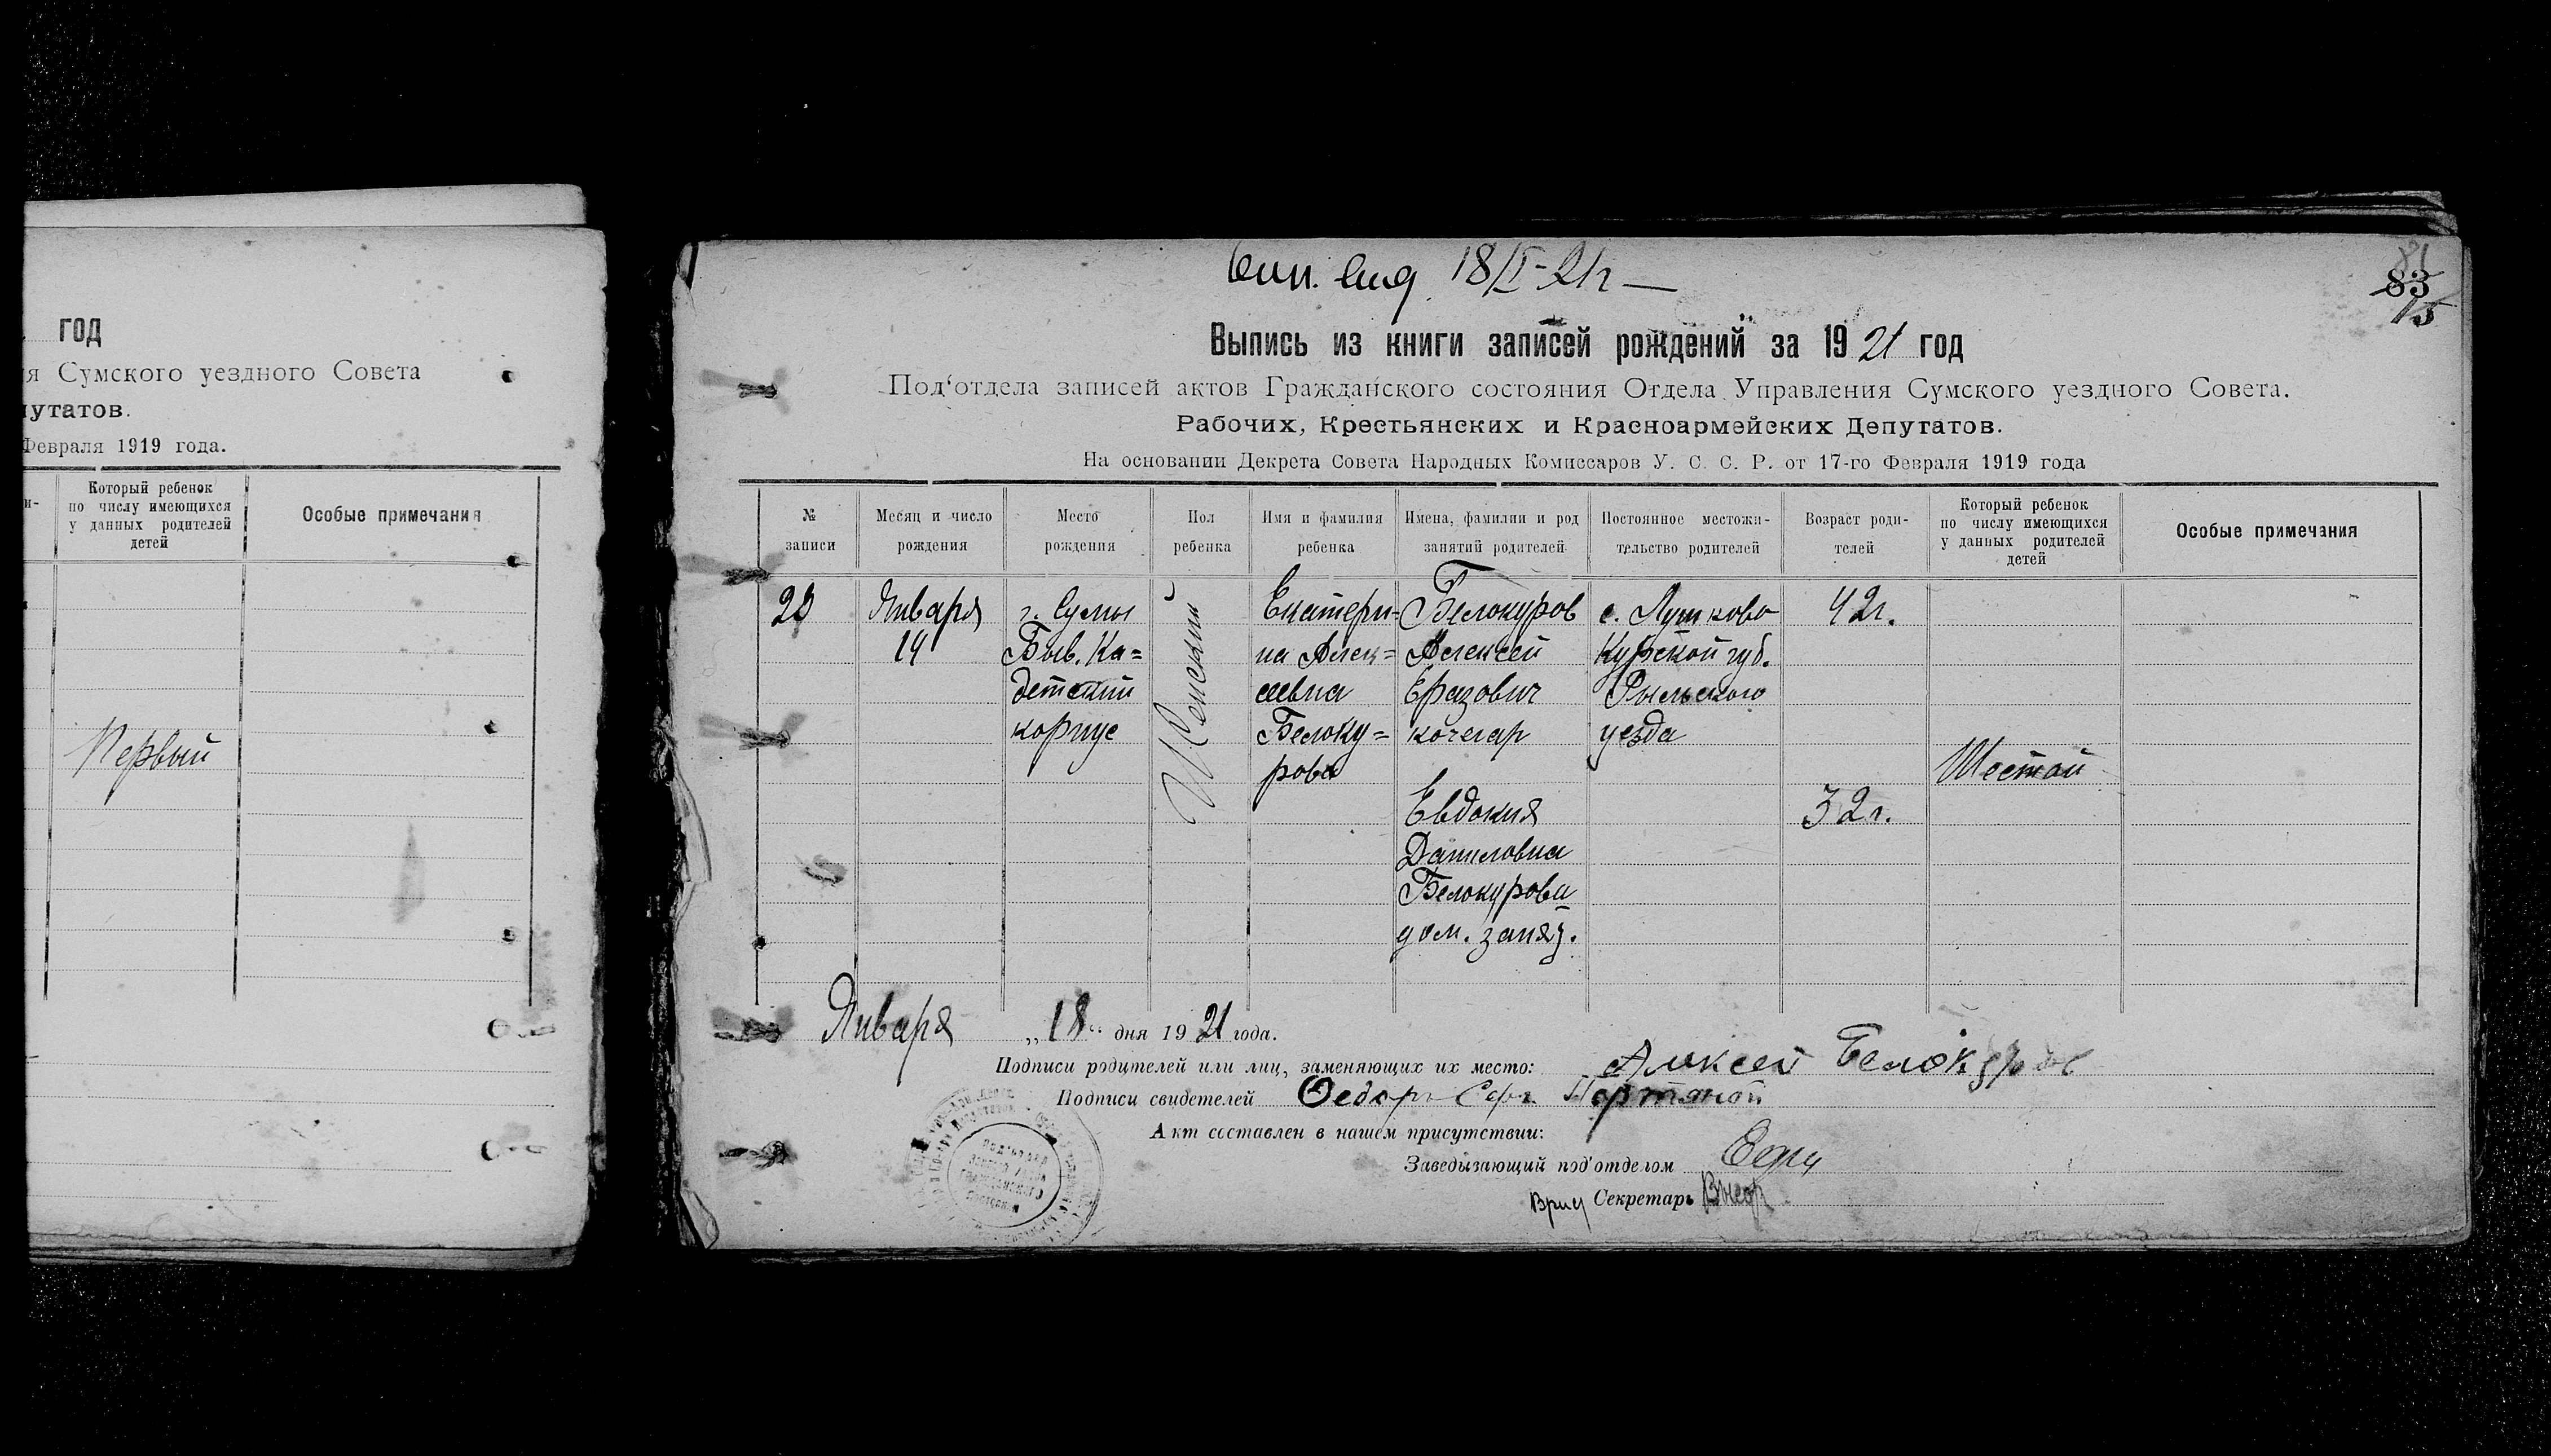 год
я Сумского уездного Совета
путатов.
Февраля 1919 года.
и-
Который ребенок
по числу имеющихся
у данных родителей
детей
Особые примечания
Первый
18/I-21г
83
Выпись из книги записей рождений за 1921 год
Под‘отдела записей актов Гражданского состояния Отдела Управления Сумского уездного Совета.
Рабочих, Крестьянских и Красноармейских Депутатов.
На основании Декрета Совета Народных Комиссаров У. С. С. Р. от 17-го Февраля 1919 года
№
записи
Месяц и число
рождения
Место
рождения
Пол
ребенка
Имя и фамилия
ребенка
Имена, фамилии и род
занятий родителей
Постоянное местожи-
тельство родителей
Возраст роди-
телей
Который ребенок
по числу имеющихся
у данных родителей
детей
Особые примечания
Января
14
г. Сумы
Быв. Ка=
детский
корпус
Женский
Екатери=
на Алек=
сеевна
Белоку=
рова
Белокуров
Алексей
Еразович
кочегар
Евдокия
Даниловна
Белокурова
дом. заняз.
с.
Курской губ.
Рыльского
уезда
42г.
32г.
Шестой
Января „18“ дня 1921 года.
Подписи родителей или лиц, заменяющих их место: Алексей Белокуров
Подписи свидетелей Федоръ
Акт составлен в нашем присутствии:
Заведывающий под‘отделом
Врид Секретарь